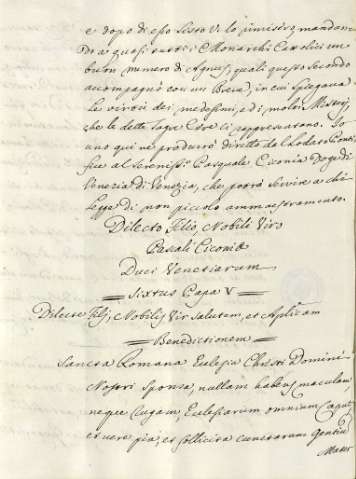 e dopo di esso Sisto V. lo imitò mandan-
Do a quasi tutti i Monarchi Cattolici un
buon numero di Agnus, quali questo Secondo
accompagnò con un Breve, in cui spiegava
le virtù dei medesimi, e di molti Misterj,
che le dette Sagre Cere ci rappresentano. Io
uno qui ne produrrò diretto da Lodato Ponte-
fice al Sereniss.o Pasquale Ciconia Doge di
Venezia di Venezia, che potrà servire a chi
legge di non piccolo ammaestramento.
Dilecto Filio, Nobili Viro
Pascali Ciconia
Duci Venetiarum
Sixtus Papa V
Dilecte Fili, Nobilis Vir Salutem, et Aplicam
Benedictionem
Sancta Romana Ecclesia Christi Domini
Nostri Sponsa, nullam habens maculam
neque rugam, Ecclesiarum omnium caput
et vere pia, et sollicita cunctarum gentium
Mater